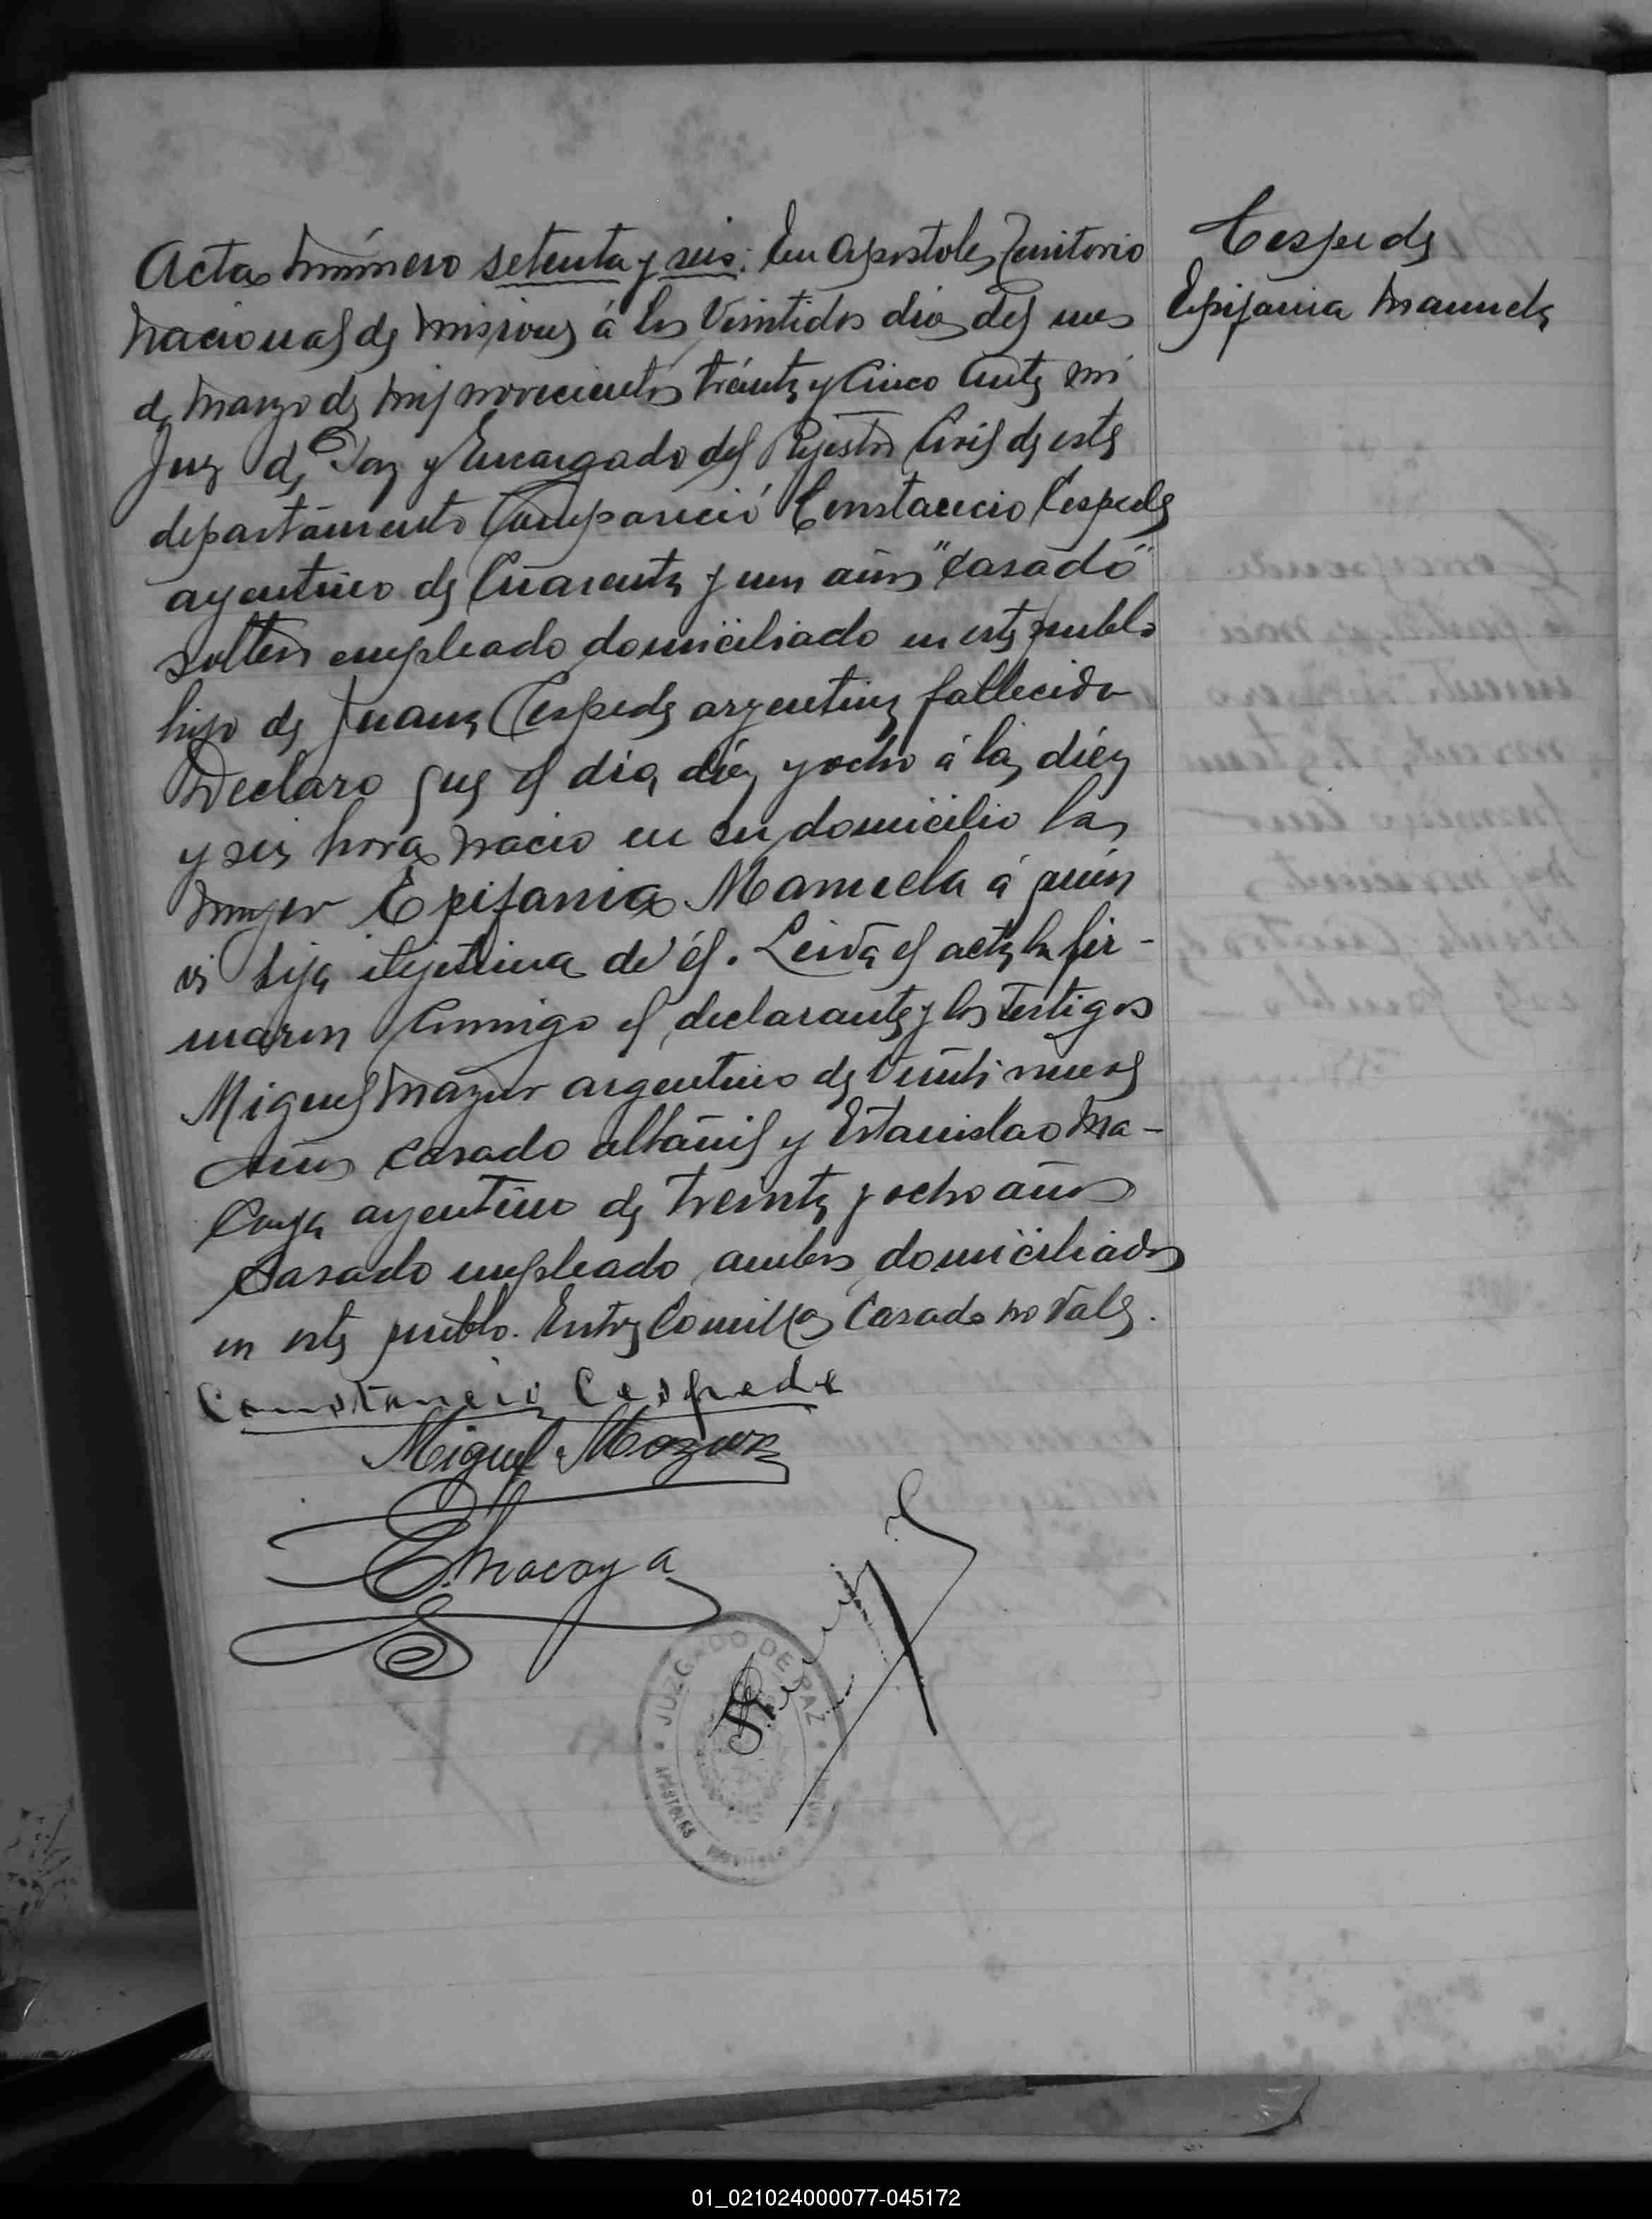 Acta número setenta y seis: En Apostoles Territorio
Nacional de Misiones á los Veintidos dias del mes
de Marzo de mil novecientos treinta y Cinco Ante mi
Juez de Paz y Encargado del Rejistro Civil de este
departamento Compareció Constancio Cespede
argentino de Cuarenta y un años "casado"
soltero empleado domiciliado en este pueblo
hijo de Juana Cespede argentina fallecida
Declaro que el dia diez y ocho á las diez
y seis horas nacio en su domicilio la
mujer Epifania Manuela á quien
vi hija ilejitima de él. Leida el acta la fir-
maron Conmigo el declarante y los Testigos
Miguel Mazur argentino de Veinti nueve
Años casado albañil y Estanislao Ma-
caya argentino de treinta y ocho años
Casado empleado ambos domiciliados
en este pueblo. Entre Comillas Casado no vale.
Constancio Cespede
Miguel Mozur
E. Macaya
Cespede
Epifania Manuela
JUZGADO DE PAZ
APÓSTOLES
01_021024000077-045172